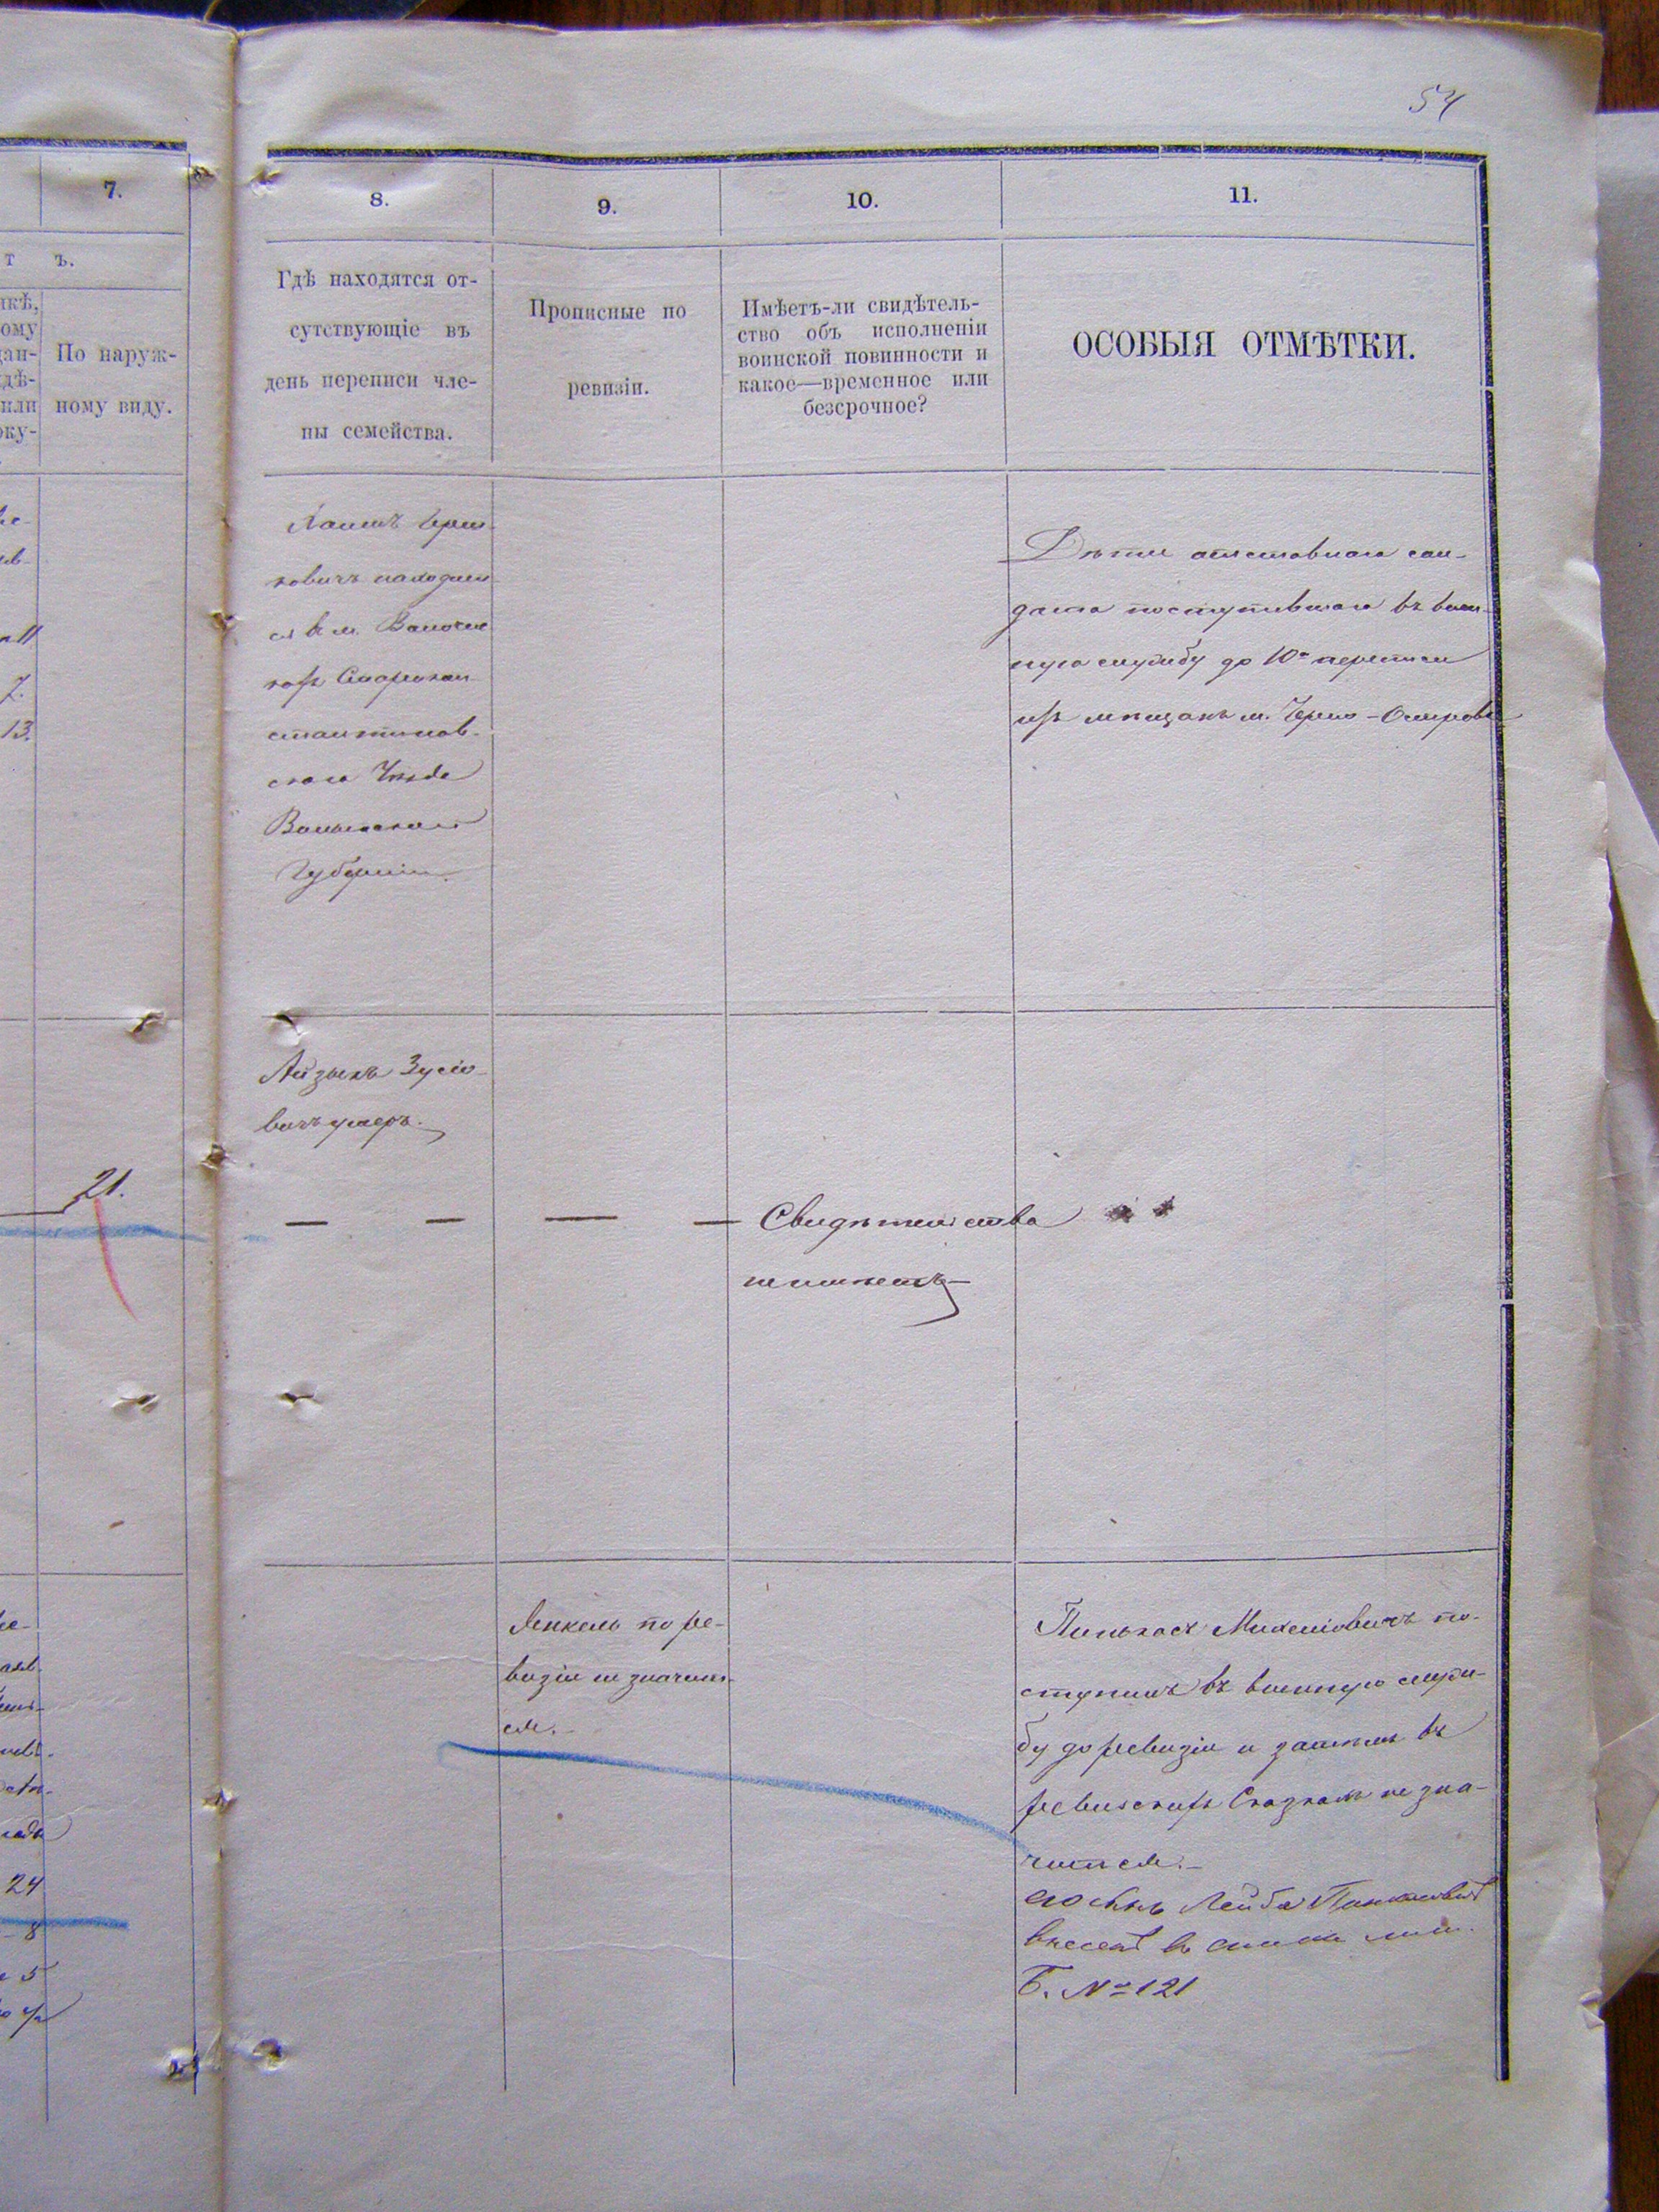 54
7.
т ъ.
По наруж-
ному виду.
11
7.
13.
21.
24
8
5
8.
9.
10.
11.
Гдѣ находятся от-
сутствующіе въ
день переписи чле-
ны семейства.
Прописные по
ревизіи.
Имѣетъ-ли свидѣтель-
ство объ исполненіи
воинской повинности и
какое—временное или
безсрочное?
ОСОБЫЯ ОТМѢТКИ.
ковичъ находит
ся в м.
Старокон
стантинов-
скаго Уѣзда
Волынской
Губерніи.
Дѣти отставнаго сол-
дата поступившаго въ воен-
ную службу до 10й переписи
изъ мѣщанъ м. Черно-Острова
Айзыкъ Зусіо-
вичъ умеръ.
— — — — Свидѣтельства
не имѣетъ
Янкель по ре-
визіи не значит-
ся.-
Пинькасъ Михеліовичъ по-
ступилъ въ военную служ-
бу до ревизіи и затѣмъ въ
ревизскихъ Сказкахъ не зна-
чится.-
сынъ Лейба Пинкасовичъ
внесенъ въ
Б. № 121